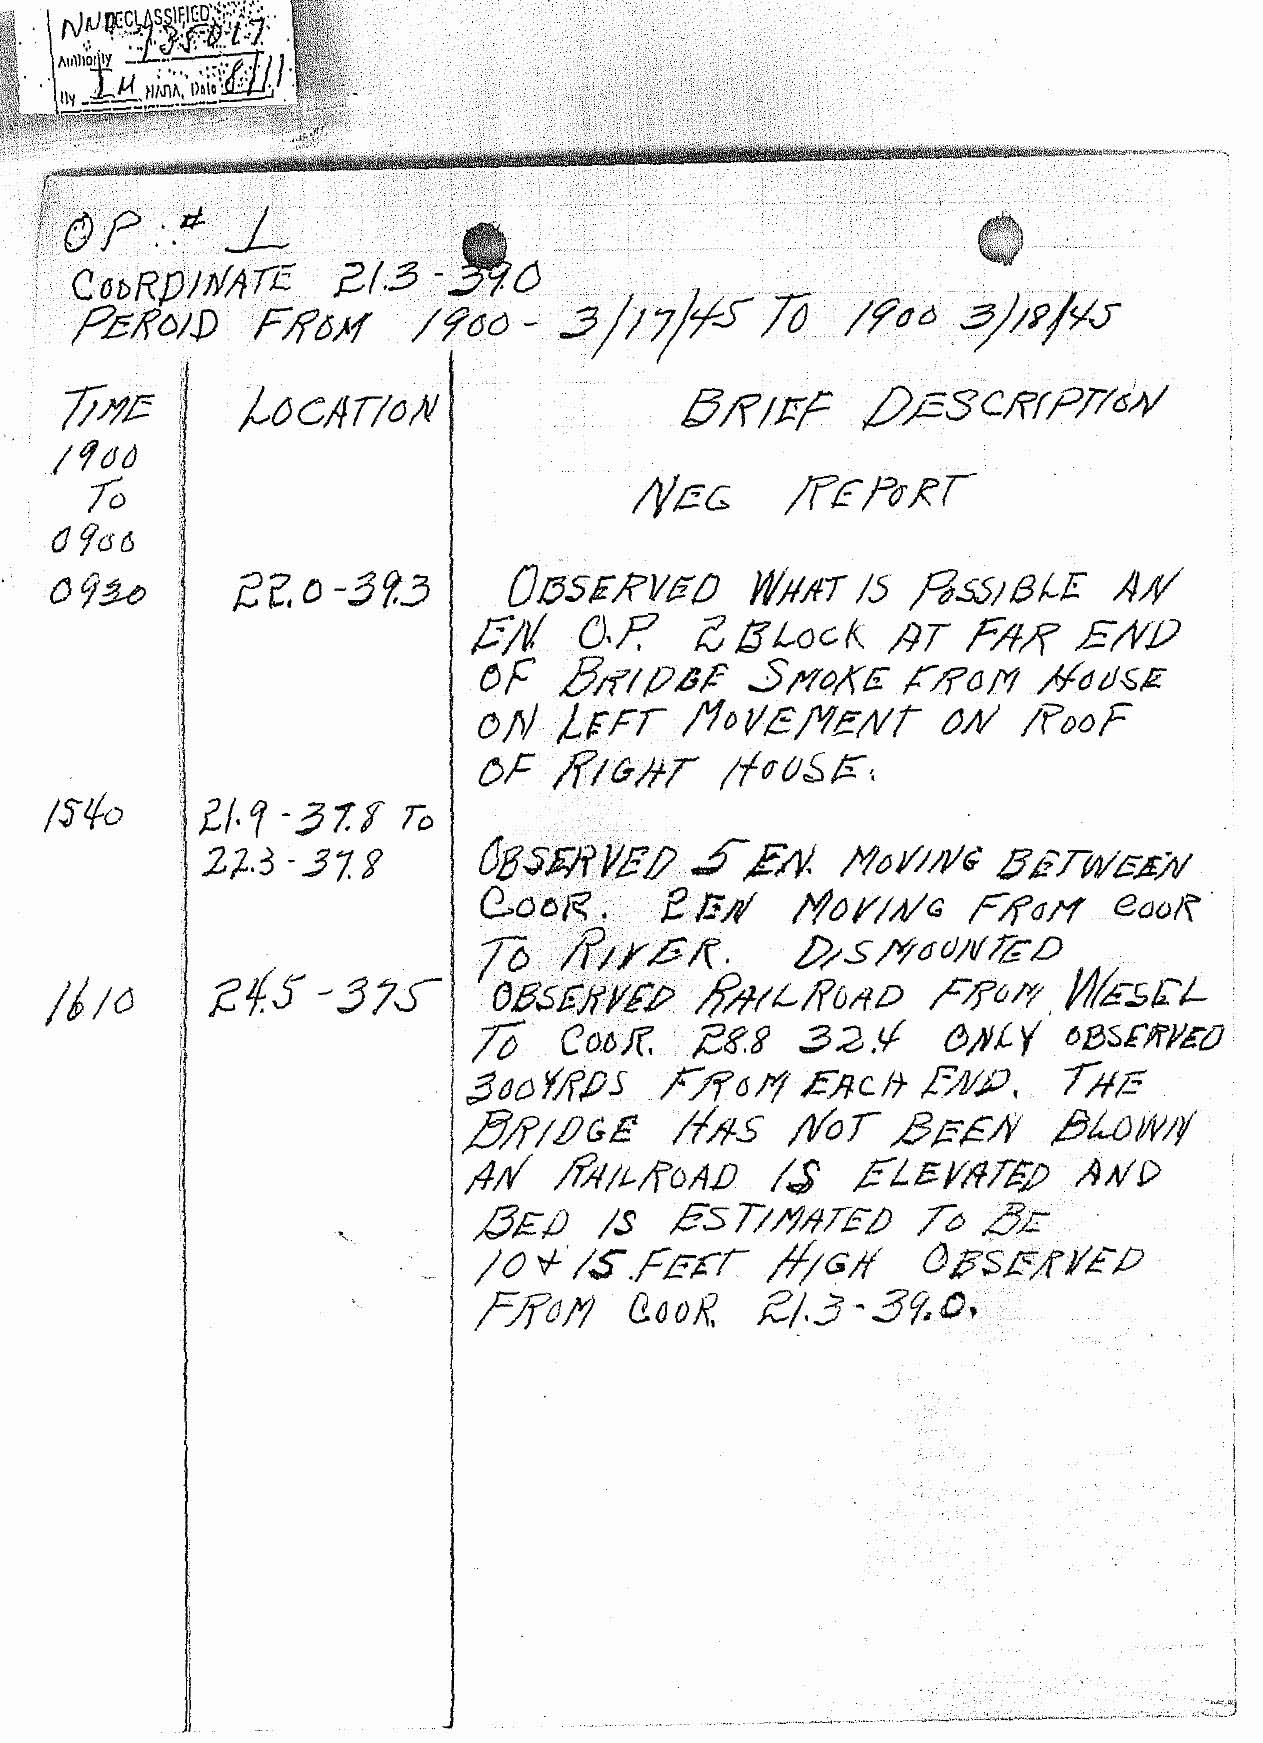 DECLASSIFIED
NND 735017
Authority
By IM NARA, Date 8/11
OP. # 1
COORDINATE 21.3 - 39.0
PEROID FROM 1900 - 3/17/45 TO 1900 3/18/45
TIME LOCATION BRIEF DESCRIPTION
1900
TO NEG REPORT
0900
0930 22.0 - 39.3 OBSERVED WHAT IS POSSIBLE AN
EN. O.P. 2 BLOCK AT FAR END
OF BRIDGE SMOKE FROM HOUSE
ON LEFT MOVEMENT ON ROOF
OF RIGHT HOUSE.
1540 21.9 - 37.8 TO
22.3 - 37.8 OBSERVED 5 EN. MOVING BETWEEN
COOR. 2 EN MOVING FROM COOR
TO RIVER. DISMOUNTED
1610 24.5 - 37.5 OBSERVED RAILROAD FROM WESEL
TO COOR. 28.8 32.4 ONLY OBSERVED
300 YRDS FROM EACH END. THE
BRIDGE HAS NOT BEEN BLOWN
AN RAILROAD IS ELEVATED AND
BED IS ESTIMATED TO BE
10 + 15 FEET HIGH OBSERVED
FROM COOR. 21.3 - 39.0.